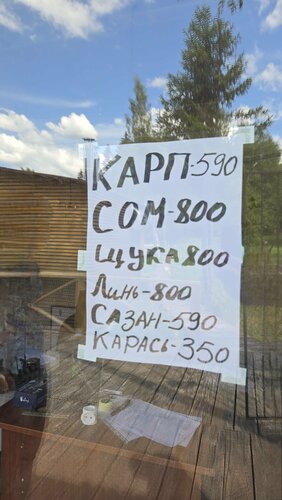 КАРП-590
СОМ-800
ЩУКА 800
Линь-800
САЗАН-590
КАРАСЬ-350